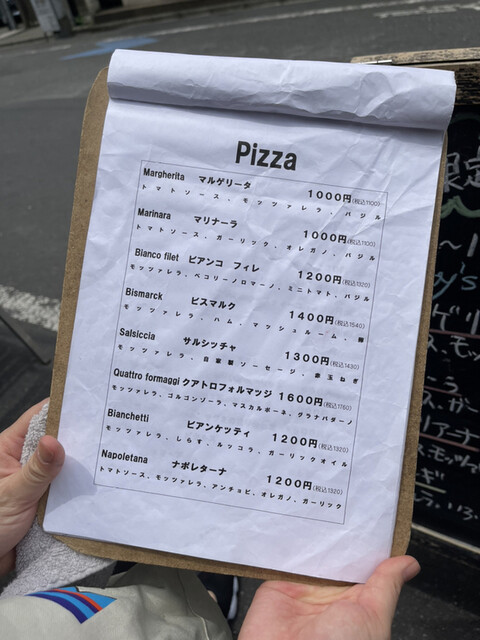 Pizza
Margherita マルゲリータ 1000円(税込1100)
トマトソース、モッツァレラ、バジル
Marinara マリナーラ 1000円(税込1100)
トマトソース、ガーリック、オレガノ、バジル
Bianco filet ビアンコ フィレ 1200円(税込1320)
モッツァレラ、ペコリーノロマーノ、ミニトマト、バジル
Bismarck ビスマルク 1400円(税込1540)
モッツァレラ、ハム、マッシュルーム、卵
Salsiccia サルシッチャ 1300円(税込1430)
モッツァレラ、自家製ソーセージ、赤玉ねぎ
Quattro formaggi クアトロフォルマッジ 1600円(税込1760)
モッツァレラ、ゴルゴンゾーラ、マスカルポーネ、グラナパダーノ
Bianchetti ビアンケッティ 1200円(税込1320)
モッツァレラ、しらす、ルッコラ、ガーリックオイル
Napoletana ナポレターナ 1200円(税込1320)
トマトソース、モッツァレラ、アンチョビ、オレガノ、ガーリック
限定